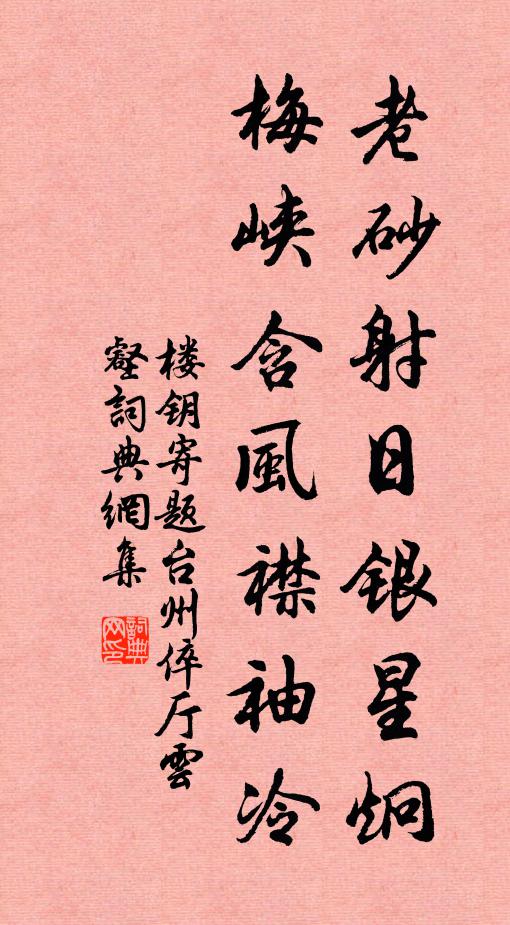 老砂射日银星炯
梅峡含風襟袖冷
楼钥寄题台州倅厅雲
壑詞典網集
詞典網印